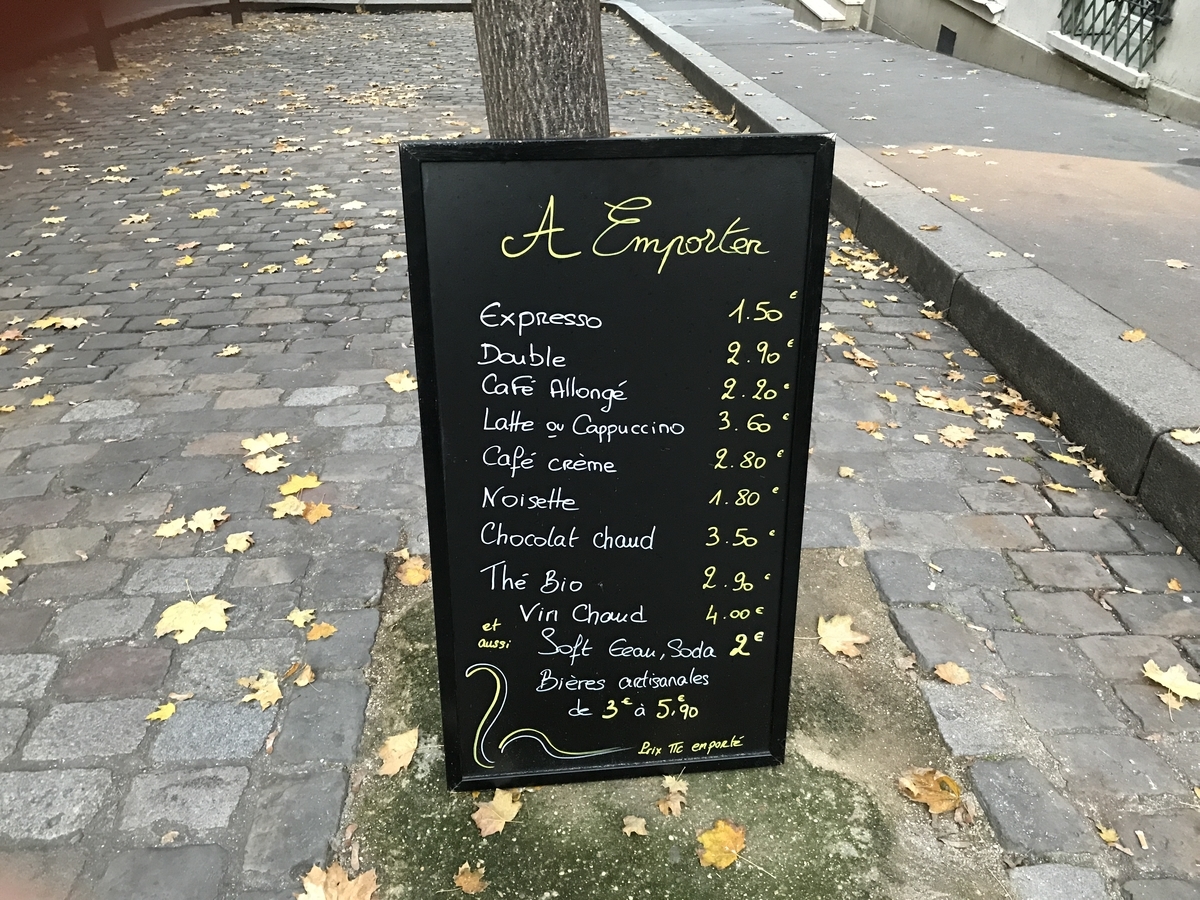 A Emporter
Expresso 1.50€
Double 2.90€
Café Allongé 2.20€
Latte ou Cappuccino 3.60€
Café crème 2.80€
Noisette 1.80€
Chocolat chaud 3.50€
Thé Bio 2.90€
Vin Chaud 4.00€
et aussi
Soft Eeau, Soda 2€
Bières artisanales
de 3€ à 5,€90
Prix TTC emporté